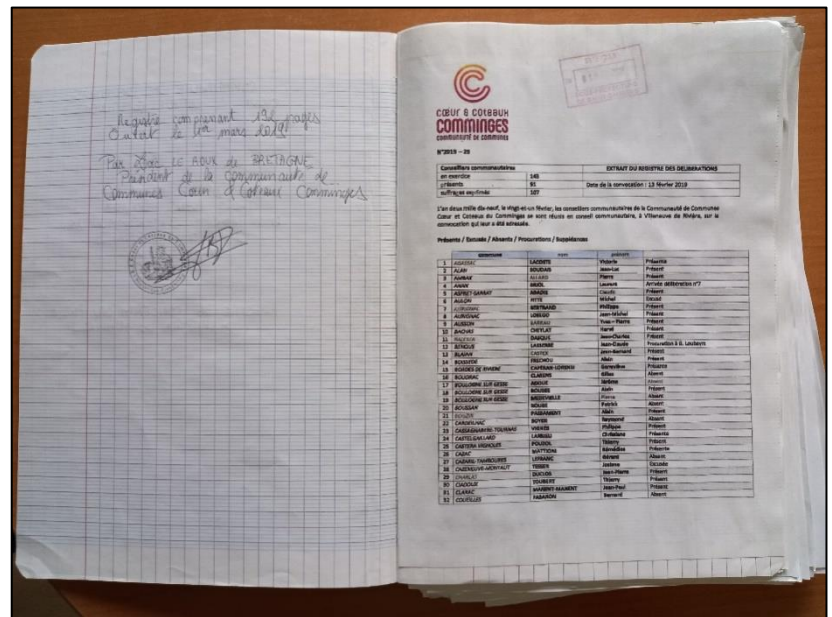 Registre comprenant 192 pages
Ouvert le 1er mars 2019
Par Loïc LE ROUX de BRETAGNE
Président de la Communauté de
Communes Cœur & Coteaux Comminges
CŒUR & COTEAUX
COMMINGES
COMMUNAUTÉ DE COMMUNES
N°2019 – 29
Conseillers communautaires
EXTRAIT DU REGISTRE DES DELIBERATIONS
en exercice 145
présents 91 Date de la convocation : 13 février 2019
suffrages exprimés 107
L'an deux mille dix-neuf, le vingt-et-un février, les conseillers communautaires de la Communauté de Communes
Cœur et Coteaux du Comminges se sont réunis en conseil communautaire, à Villeneuve de Rivière, sur la
convocation qui leur a été adressée.
Présents / Excusés / Absents / Procurations / Suppléances
nom prénom
1 LACOSTE Victorin Présente
2 ALAN SOUDAIS Jean-Luc Présent
3 ALLARD Pierre Présent
4 ANAN Laurent Arrivée délibération n°7
5 ASPRET-SARRAT Claude Présent
6 AULON Michel Excusé
7 BERTRAND Philippe Présent
8 AURIGNAC LOSEGO Jean-Michel Présent
9 AUSSON BARRAU Yves – Pierre Présent
10 BACHAS CHEYLAT Hervé Présent
11 DASQUE Jean-Charles Présent
12 Jean-Claude Procuration à G. Loubeyre
13 BLAJAN CASTEX Jean-Bernard Présent
14 BOISSEDE FRECHOU Alain Présent
15 BORDES DE RIVIERE Geneviève Présente
16 BOUDRAC CLARENS Gilles Absent
17 BOULOGNE SUR GESSE ADOUE Jérôme Absent
18 BOULOGNE SUR GESSE BOUBEE Alain Présent
19 BOULOGNE SUR GESSE MEDEVIELLE Pierre Absent
20 BOUSSAN Patrick Absent
21 Alain Présent
22 CARDEILHAC BOYER Raymond Absent
23 CASSAGNABERE-TOURNAS Philippe Présent
24 CASTELGAILLARD Christiane Présente
25 CASTERA VIGNOLES POUZOL Thierry Présent
26 CAZAC MATTIODA Présente
27 CAZARIL-TAMBOURES LEFRANC Gérard Absent
28 CAZENEUVE-MONTAUT Josiane Excusée
29 CHARLAS DUCLOS Jean-Pierre Présent
30 CIADOUX Thierry Présent
31 CLARAC Jean-Paul Présent
32 COUEILLES Bernard Absent